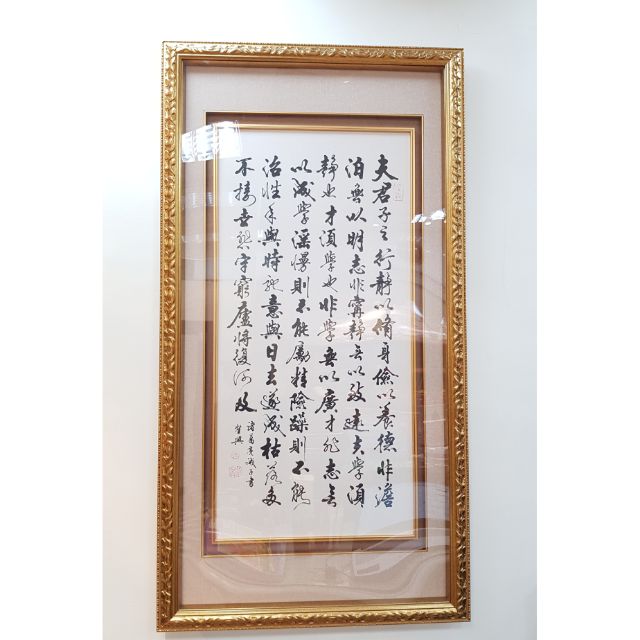 夫君子之行靜以脩身儉以養德非澹
泊無以明志非寧靜無以致遠夫學須
靜也才須學也非學無以廣才非志無
以成學滛慢則不能勵精險躁則不能
治性年與時馳意與日去遂成枯落多
不接世悲守窮廬將復何及
諸葛亮誡子書